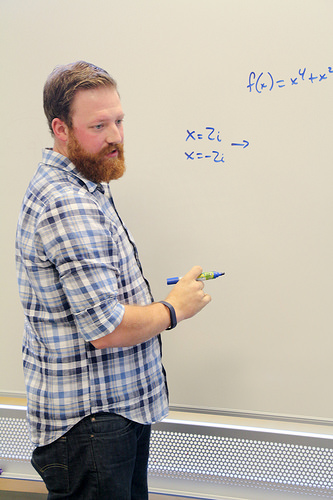 f(x) = x⁴ + x²
x = 2i →
x = -2i